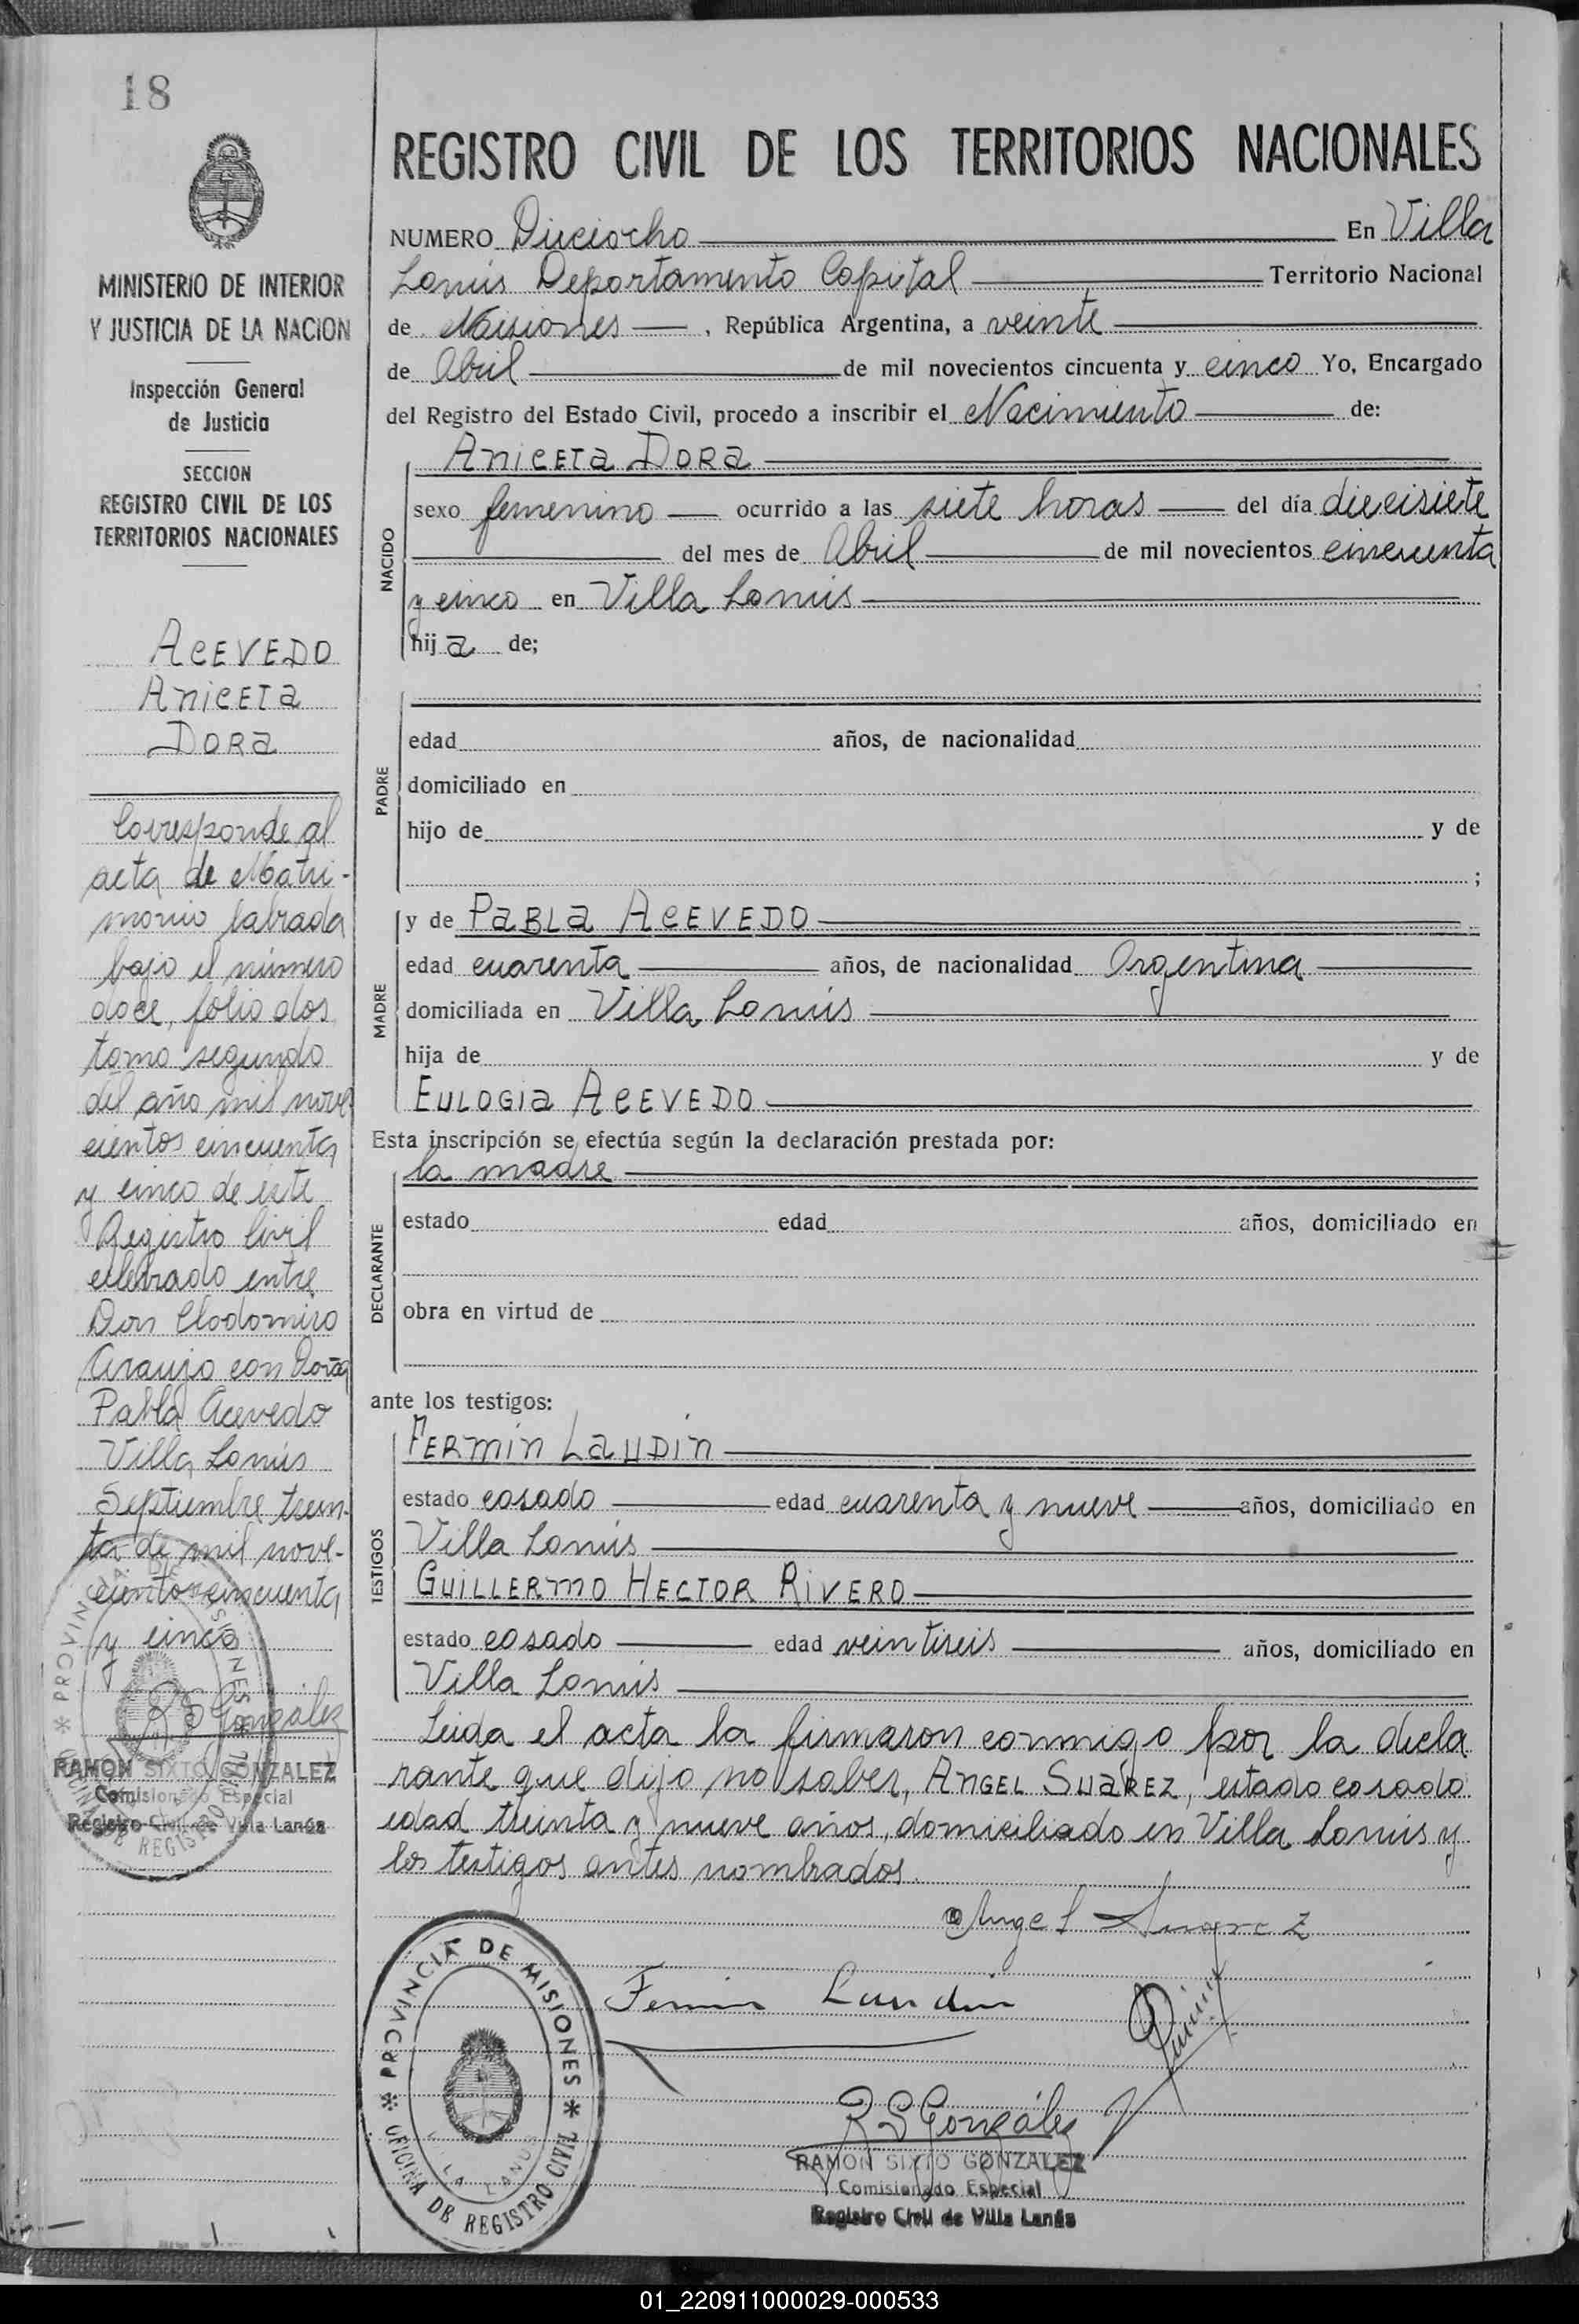 18
MINISTERIO DE INTERIOR
Y JUSTICIA DE LA NACION
Inspección General
de Justicia
SECCION
REGISTRO CIVIL DE LOS
TERRITORIOS NACIONALES
ACEVEDO
ANICETA
DORA
Corresponde al
acta de Matri-
monio labrada
bajo el número
doce, folio dos
tomo segundo
del año mil nove
cientos cincuenta
y cinco de este
Registro Civil
celebrado entre
Don Clodomiro
Araujo con Doña
Pabla Acevedo
Villa Lanús
Septiembre trein-
ta de mil nove-
cientos cincuenta
y cinco
R S González
RAMON SIXTO GONZALEZ
Comisionado Especial
Registro Civil de Villa Lanús
REGISTRO CIVIL DE LOS TERRITORIOS NACIONALES
NUMERO Dieciocho En Villa
Lanús Departamento Capital Territorio Nacional
de Misiones, República Argentina, a veinte
de Abril de mil novecientos cincuenta y cinco Yo, Encargado
del Registro del Estado Civil, procedo a inscribir el Nacimiento de:
NACIDO
ANICETA DORA
sexo femenino ocurrido a las siete horas del día diecisiete
del mes de Abril de mil novecientos cincuenta
y cinco en Villa Lanús
hija de;
PADRE
edad años, de nacionalidad
domiciliado en
hijo de y de
;
MADRE
y de PABLA ACEVEDO
edad cuarenta años, de nacionalidad Argentina
domiciliada en Villa Lanús
hija de y de
EULOGIA ACEVEDO
Esta inscripción se efectúa según la declaración prestada por:
DECLARANTE
la madre
estado edad años, domiciliado en
obra en virtud de
ante los testigos:
TESTIGOS
FERMIN LAUDIN
estado casado edad cuarenta y nueve años, domiciliado en
Villa Lanús
GUILLERMO HECTOR RIVERO
estado casado edad veintiseis años, domiciliado en
Villa Lanús
Leida el acta la firmaron conmigo por la decla
rante que dijo no saber, ANGEL SUAREZ, estado casado
edad treinta y nueve años, domiciliado en Villa Lanús y
los testigos antes nombrados.
Angel Suarez
Fermin Laudin
R S González
RAMON SIXTO GONZALEZ
Comisionado Especial
Registro Civil de Villa Lanús
PROVINCIA DE MISIONES
OFICINA DE REGISTRO CIVIL
VILLA LANUS
01_220911000029-000533